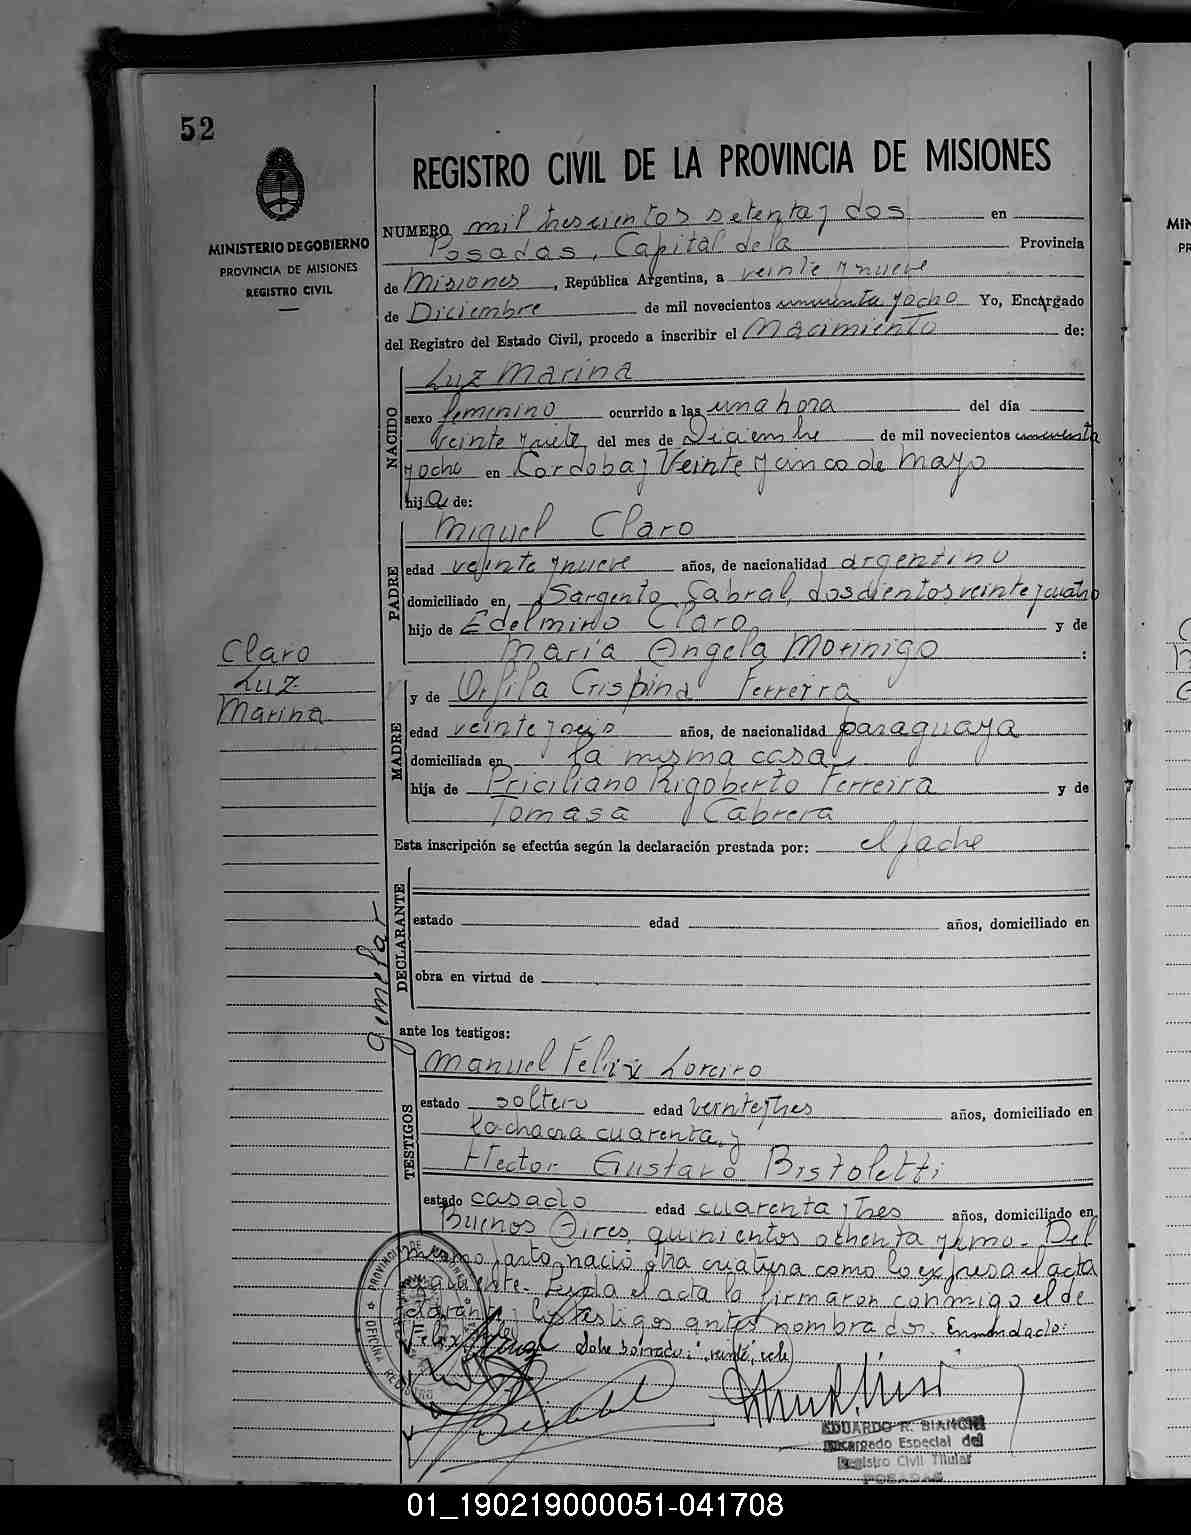 52
MINISTERIO DE GOBIERNO
PROVINCIA DE MISIONES
REGISTRO CIVIL
REGISTRO CIVIL DE LA PROVINCIA DE MISIONES
NUMERO mil trescientos setenta y dos en
Posadas, Capital de la Provincia
de Misiones, República Argentina, a veinte y nueve
de Diciembre de mil novecientos cincuenta y ocho Yo, Encargado
del Registro del Estado Civil, procedo a inscribir el Nacimiento de:
NACIDO
Luz Marina
sexo femenino ocurrido a las una hora del día
veinte y siete del mes de Diciembre de mil novecientos cincuenta
y ocho en Cordoba y Veinte y cinco de Mayo
hija de:
PADRE
Miguel Claro
edad veinte y nueve años, de nacionalidad argentino
domiciliado en Sargento Cabral, doscientos veinte y cuatro
hijo de Edelmiro Claro y de
Maria Angela Morinigo :
Claro
Luz
Marina
MADRE
y de Orfila Crispina Ferreira
edad veinte y seis años, de nacionalidad paraguaya
domiciliada en la misma casa
hija de Priciliano Rigoberto Ferreira y de
Tomasa Cabrera
Esta inscripción se efectúa según la declaración prestada por: el padre
DECLARANTE
estado edad años, domiciliado en
obra en virtud de
gemelar
ante los testigos:
TESTIGOS
Manuel Felix Loreiro
estado soltero edad veinte y tres años, domiciliado en
la chacra cuarenta, y
Hector Gustavo Bistoletti
estado casado edad cuarenta y tres años, domiciliado en
Buenos Aires, quinientos ochenta y uno. Del
mismo parto nació otra criatura como lo expresa el acta
siguiente. Leida el acta la firmaron conmigo el de
clarante y los testigos antes nombrados. Enmendado:
Felix Sobre borrado: veinte, vale
EDUARDO R. BIANCHI
Encargado Especial del
Registro Civil Titular
POSADAS
01_190219000051-041708